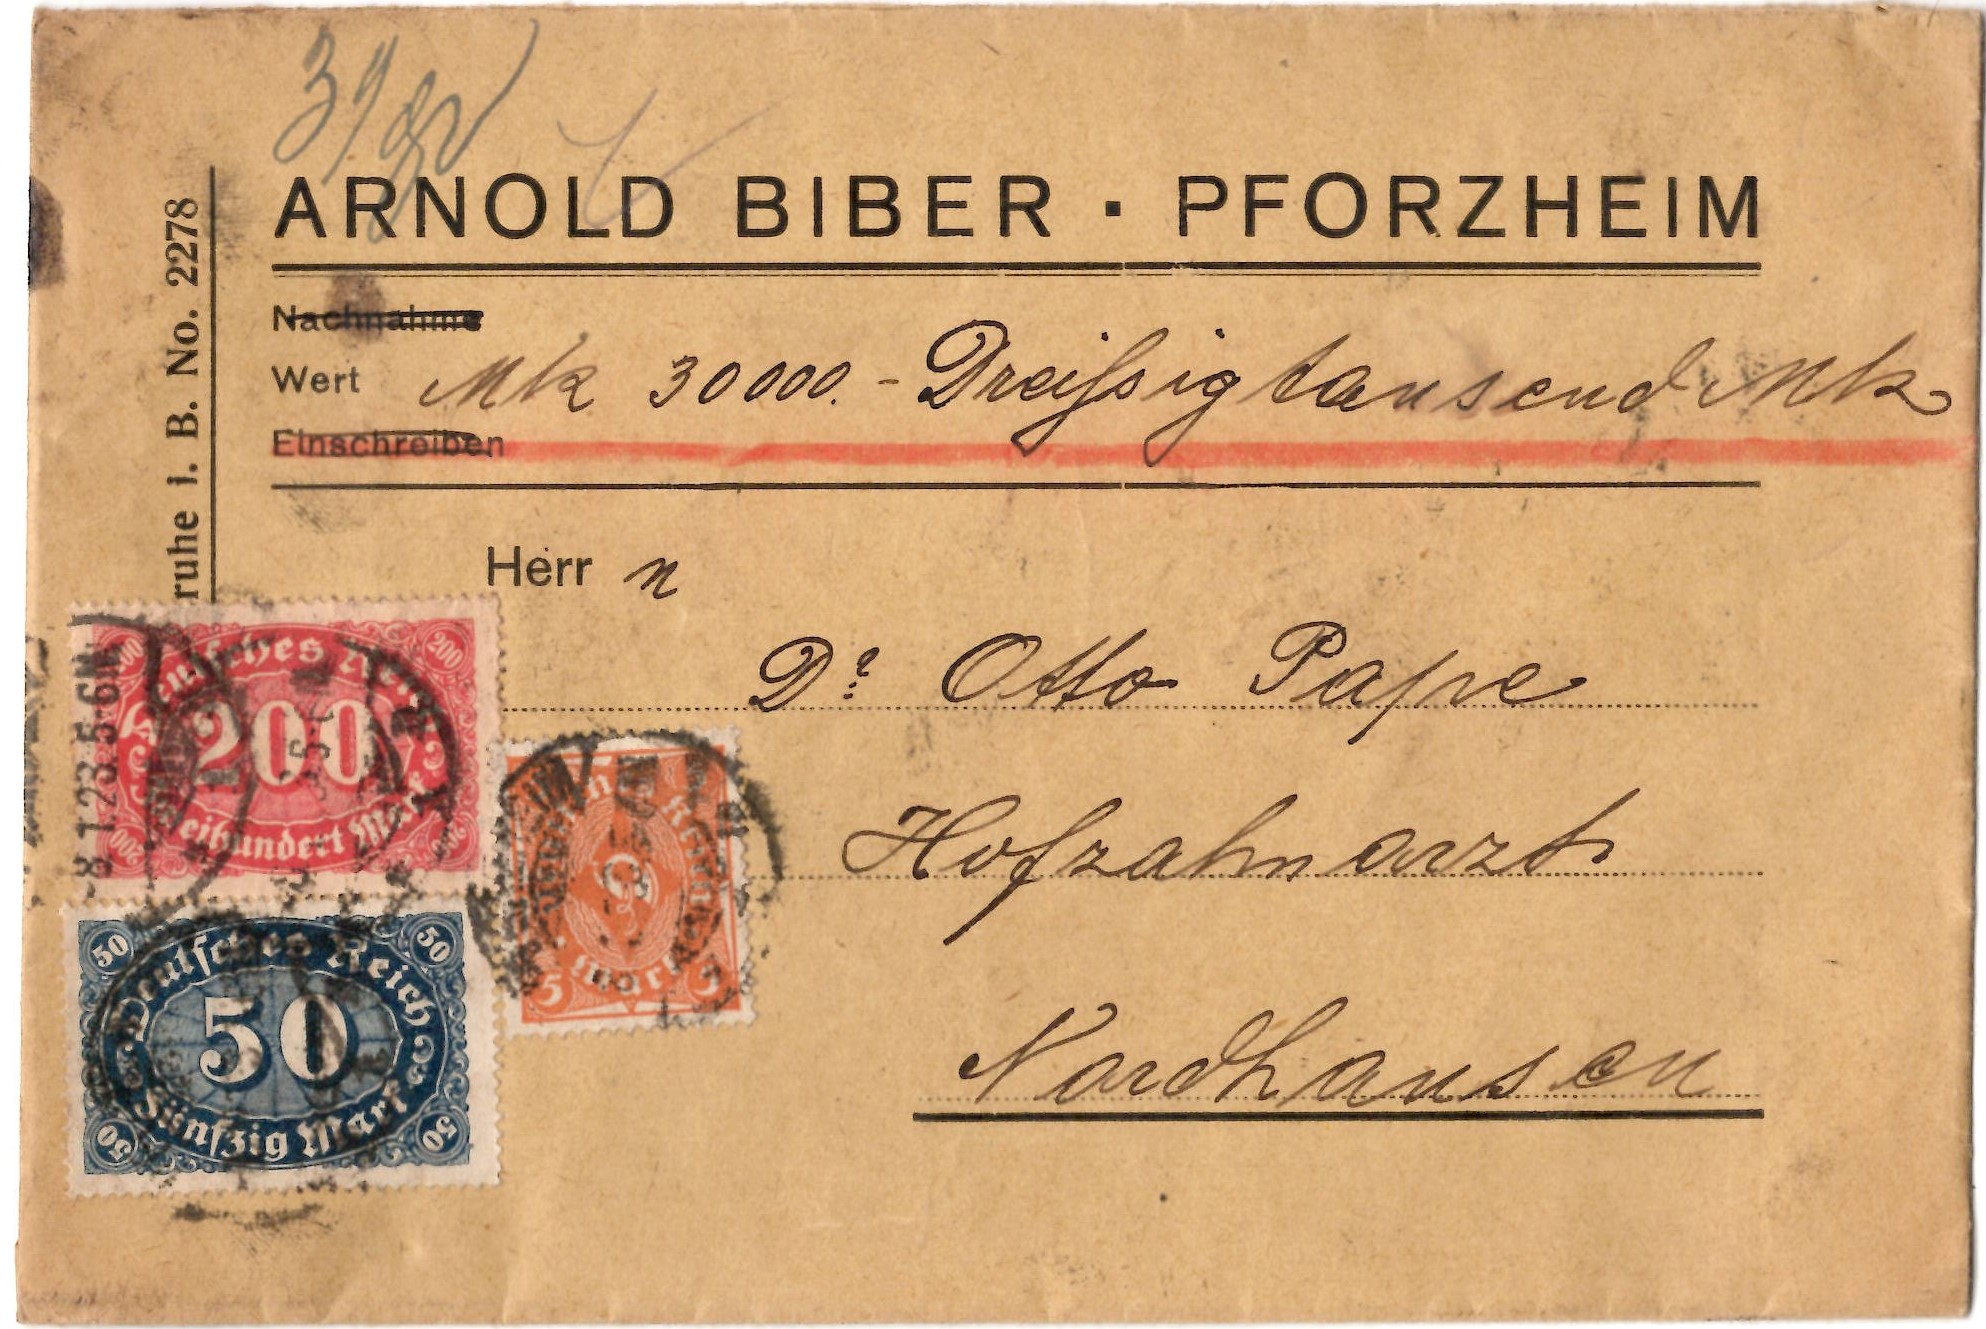 ARNOLD BIBER · PFORZHEIM
ruhe i. B. No. 2278
Nachnahme
Wert Mk 30000.- Dreißigtausend Mk
Einschreiben
Herr n
Dr Otto Pape
Hofzahnarzt
Nordhausen
200 200
Deutsches Reich
200
Zweihundert Mark
200 200
-8.1.23.5-6N.
50 50
Deutsches Reich
50
Fünfzig Mark
50 50
Deutsches Reich
5 Mark 5